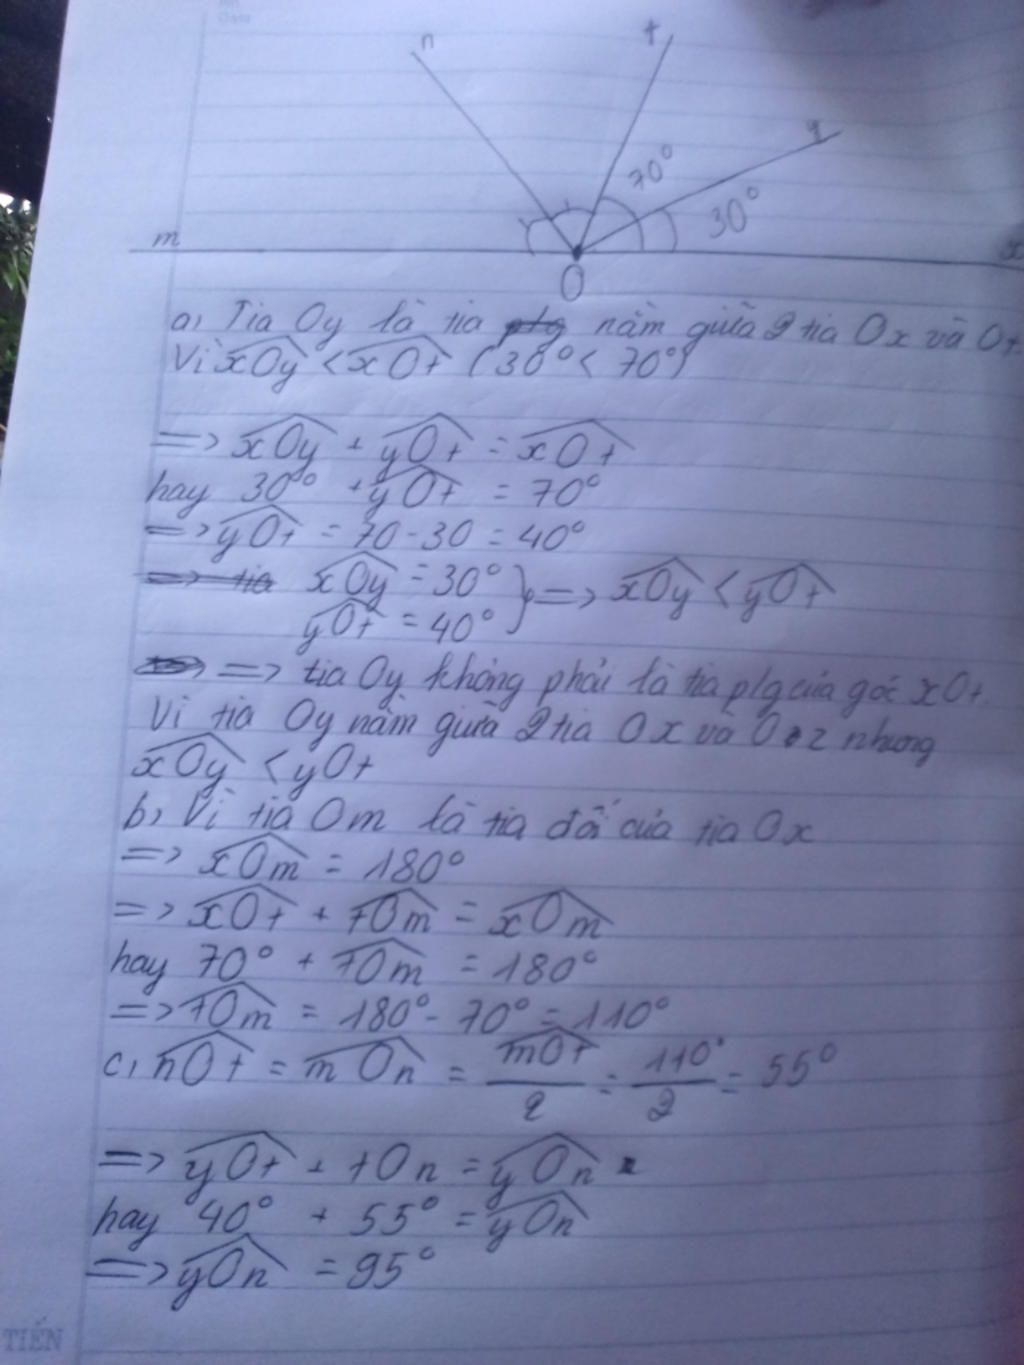 n
t
y
70°
30°
m
x
O
a, Tia Oy là tia nằm giữa 2 tia Ox và Ot.
Vì xOy < xOt (30° < 70°)
=> xOy + yOt = xOt
hay 30° + yOt = 70°
=> yOt = 70 - 30 = 40°
=> tia xOy = 30° } => xOy < yOt
yOt = 40°
=> tia Oy không phải là tia plg của góc xOt.
Vì tia Oy nằm giữa 2 tia Ox và Oz nhưng
xOy < yOt
b, Vì tia Om là tia đối của tia Ox
=> xOm = 180°
=> xOt + tOm = xOm
hay 70° + tOm = 180°
=> tOm = 180° - 70° = 110°
c, nOt = mOn = mOt/2 = 110°/2 = 55°
=> yOt + tOn = yOn
hay 40° + 55° = yOn
=> yOn = 95°
TIẾN